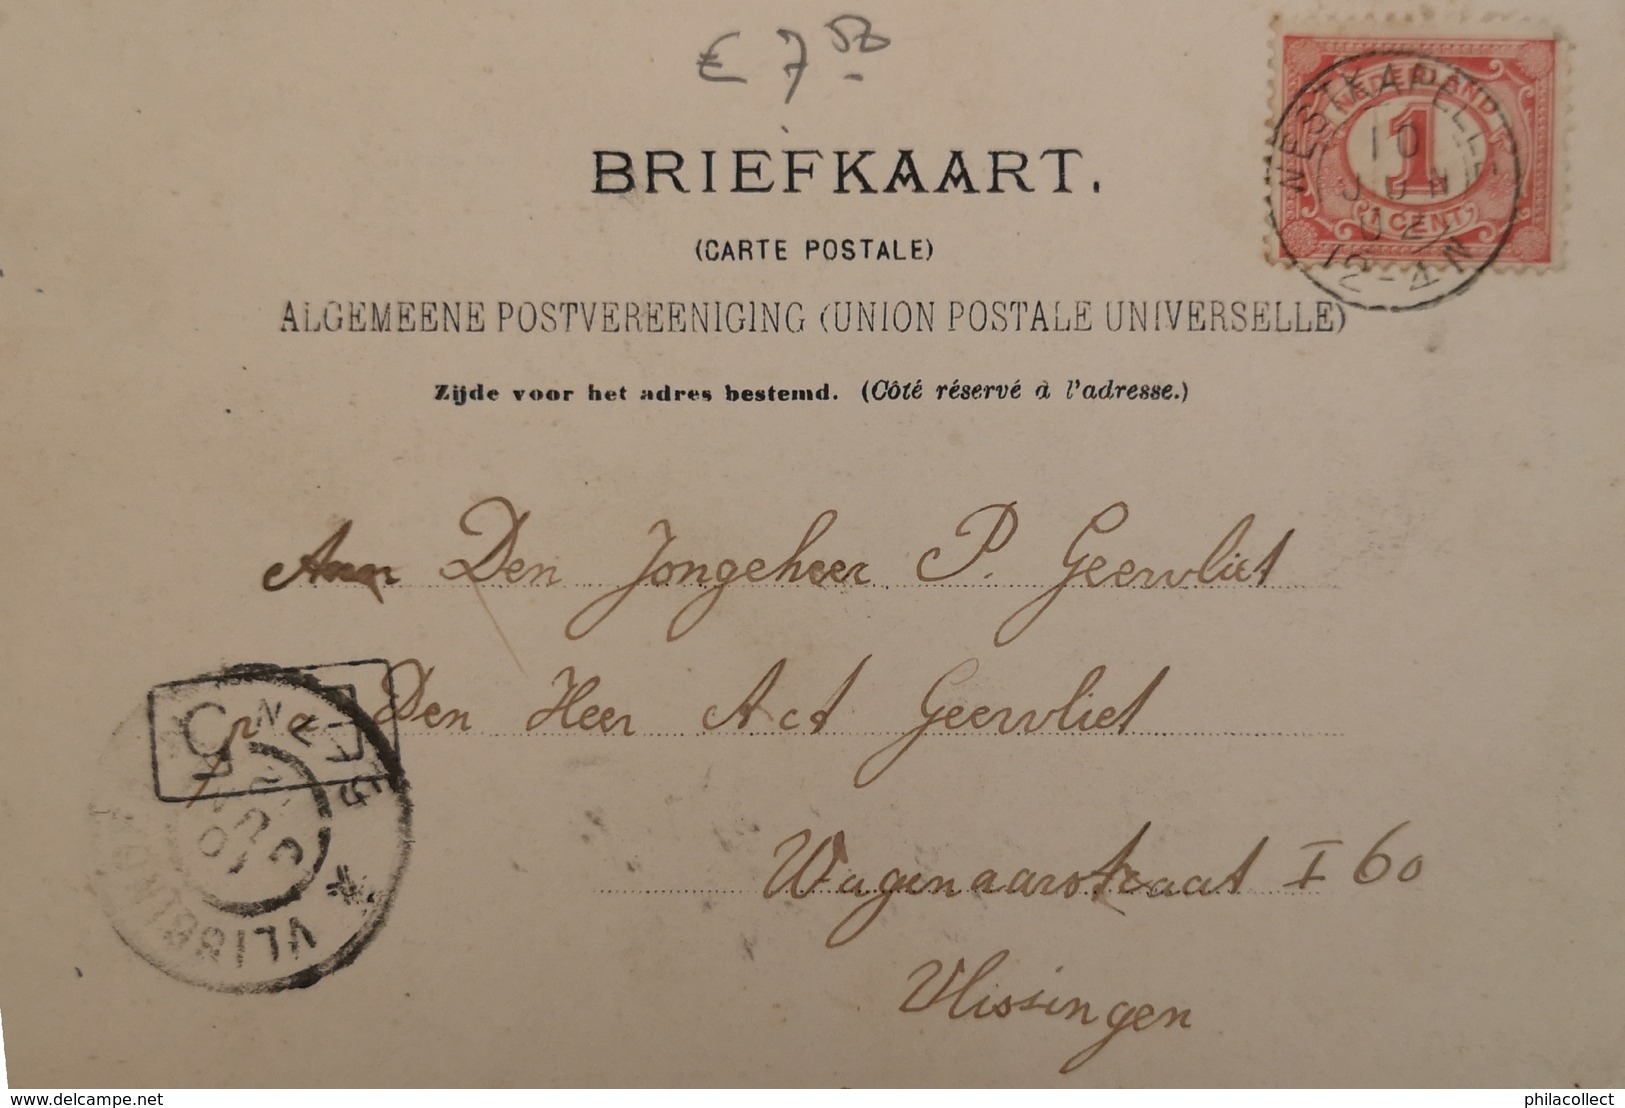 € 7 50
BRIEFKAART.
(CARTE POSTALE)
ALGEMEENE POSTVEREENIGING (UNION POSTALE UNIVERSELLE)
Zijde voor het adres bestemd. (Côté réservé à l'adresse.)
NEDERLAND
1
1 CENT
WESTKAPELLE
10
JUN
02
12-4N
Aan Den Jongeheer P. Geervliet
Den Heer Act Geervliet
Wagenaarstraat I 60
Vlissingen
VLISSINGEN
www.delcampe.net
philacollect